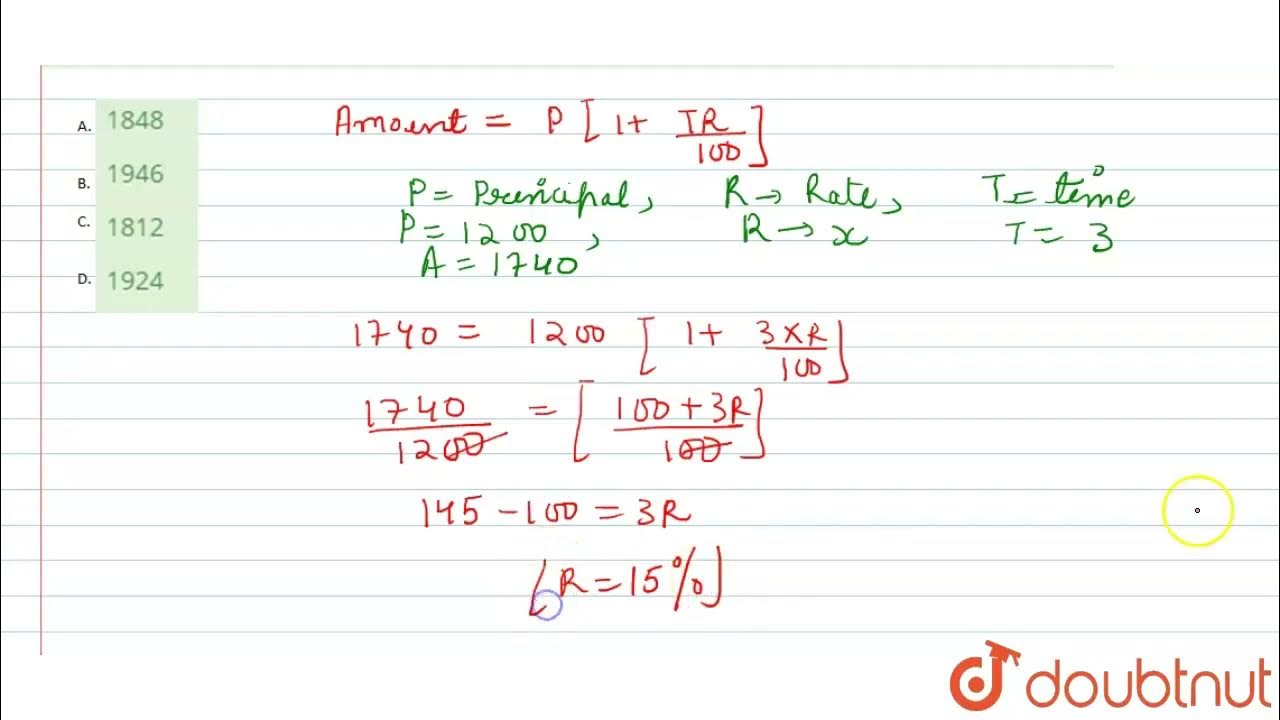 A. 1848
B. 1946
C. 1812
D. 1924
Amount = P [ 1+ TR/100 ]
P = Principal, R → Rate, T = time
P = 1200, R → x T = 3
A = 1740
1740 = 1200 [ 1+ 3×R/100 ]
1740/1200 = [ 100+3R/100 ]
145 - 100 = 3R
[R = 15%]
doubtnut